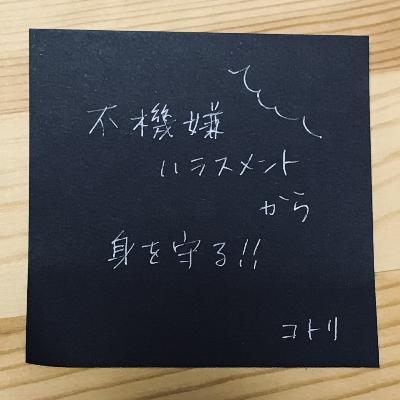 不機嫌
ハラスメント
から
身を守る!!
コトリ